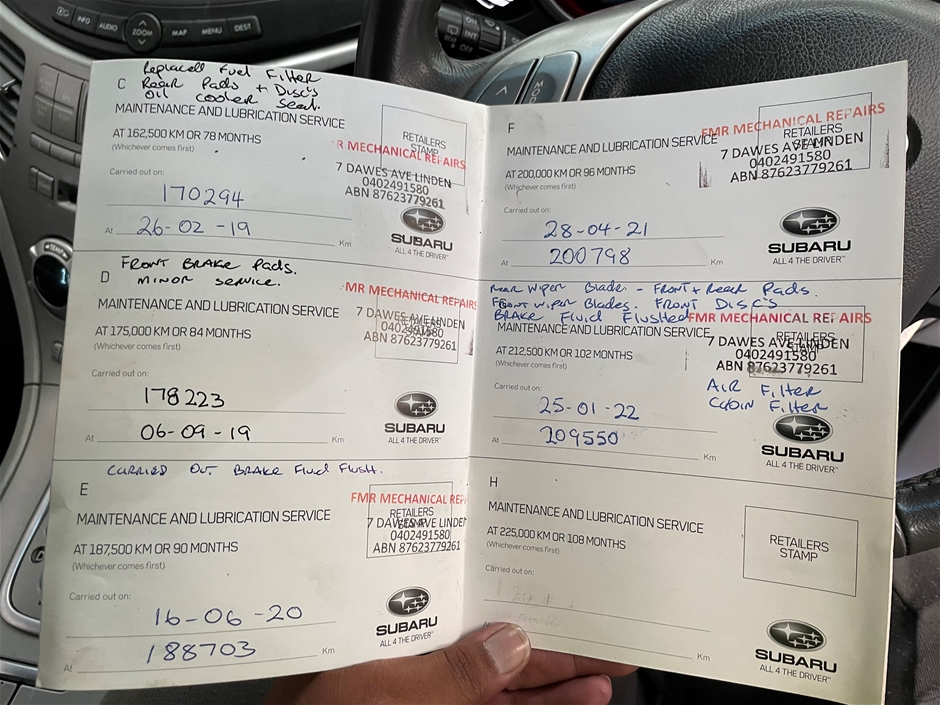 INFO
AUDIO
ZOOM
MAP
MENU
DEST
REAR
INT
OFF
Replaced Fuel Filter
Rear Pads + Disc's
Oil cooler seal.
C
MAINTENANCE AND LUBRICATION SERVICE
AT 162,500 KM OR 78 MONTHS
(Whichever comes first)
RETAILERS
STAMP
R MECHANICAL REPAIRS
7 DAWES AVE LINDEN
0402491580
ABN 87623779261
Carried out on:
170294
At 26-02-19 Km
SUBARU
ALL 4 THE DRIVER™
Front Brake Pads.
D minor service.
MAINTENANCE AND LUBRICATION SERVICE
AT 175,000 KM OR 84 MONTHS
(Whichever comes first)
MR MECHANICAL REPAIRS
7 DAWES AVE LINDEN
0402491580
ABN 87623779261
Carried out on:
178223
At 06-09-19 Km
SUBARU
ALL 4 THE DRIVER™
Carried out Brake Fluid Flush.
E
MAINTENANCE AND LUBRICATION SERVICE
AT 187,500 KM OR 90 MONTHS
(Whichever comes first)
FMR MECHANICAL REPAI
RETAILERS
STAMP
7 DAWES AVE LINDEN
0402491580
ABN 87623779261
Carried out on:
16-06-20
At 188703 Km
SUBARU
ALL 4 THE DRIVER™
F
MAINTENANCE AND LUBRICATION SERVICE
AT 200,000 KM OR 96 MONTHS
(Whichever comes first)
FMR MECHANICAL REPAIRS
RETAILERS
STAMP
7 DAWES AVE LINDEN
0402491580
ABN 87623779261
Carried out on:
28-04-21
At 200798 Km
SUBARU
ALL 4 THE DRIVER™
Rear Wiper Blade - Front + Rear Pads.
Front Wiper Blades. Front Disc's
Brake Fluid Flushed
MAINTENANCE AND LUBRICATION SERVICE
AT 212,500 KM OR 102 MONTHS
(Whichever comes first)
FMR MECHANICAL REPAIRS
RETAILERS
STAMP
7 DAWES AVE LINDEN
0402491580
ABN 87623779261
Air Filter
Cabin Filter
Carried out on:
25-01-22
At 209550 Km
SUBARU
ALL 4 THE DRIVER™
H
MAINTENANCE AND LUBRICATION SERVICE
AT 225,000 KM OR 108 MONTHS
(Whichever comes first)
RETAILERS
STAMP
Carried out on:
Km
SUBARU
ALL 4 THE DRIVER™